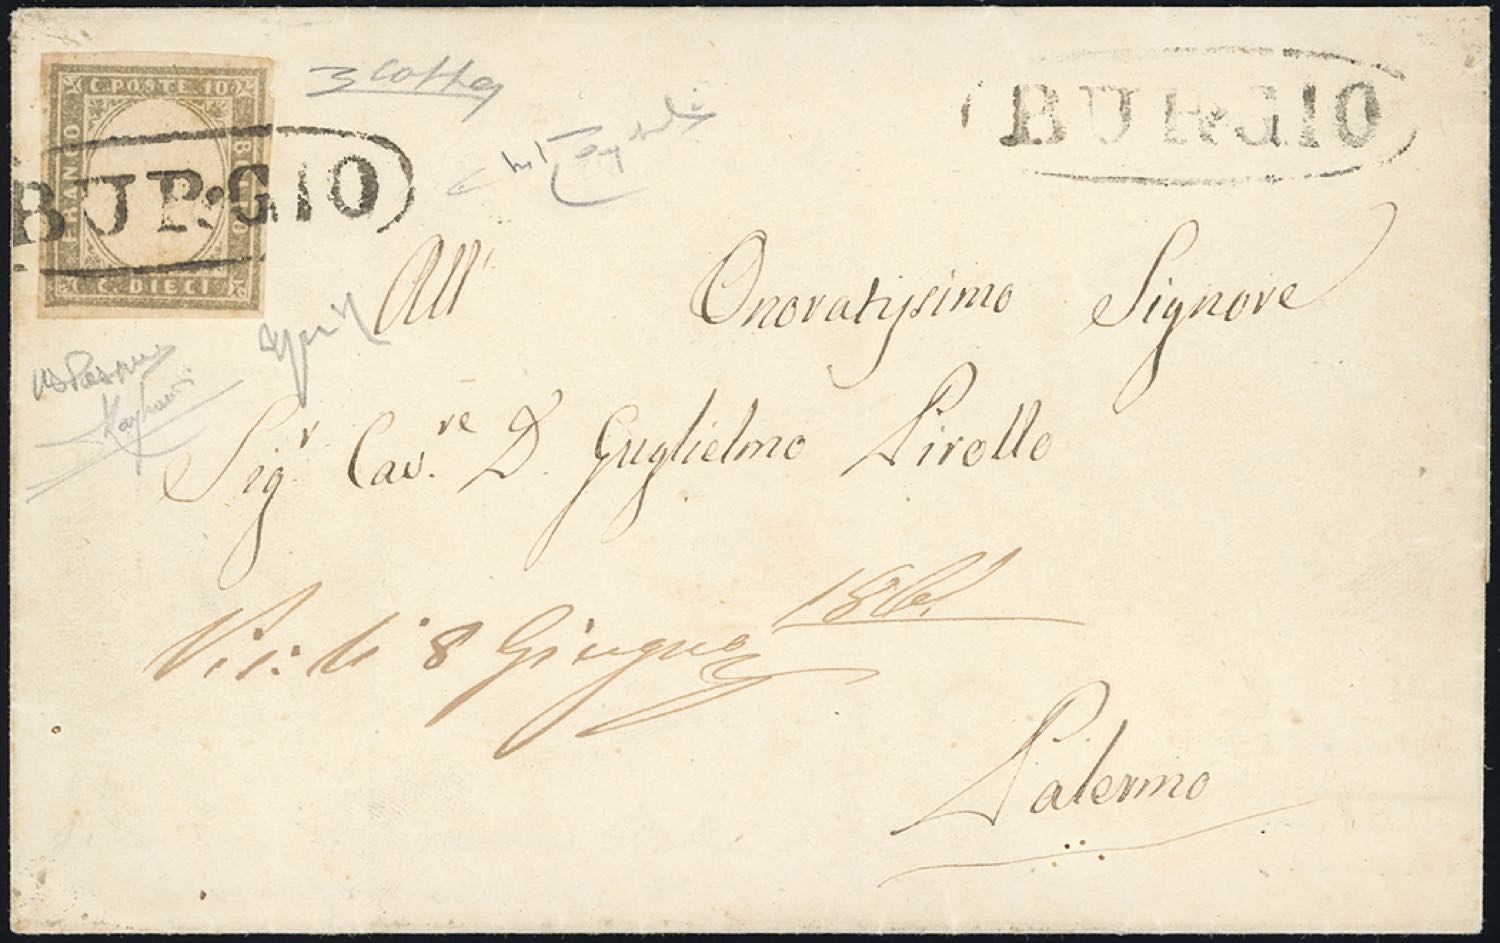 C. POSTE 10
FRANCO
BOLLO
C. DIECI
BURGIO
BURGIO
All' Onoratissimo Signore
Sigr. Cav.re D. Guglielmo Pirollo
li 8 Giugno 1861
Palermo